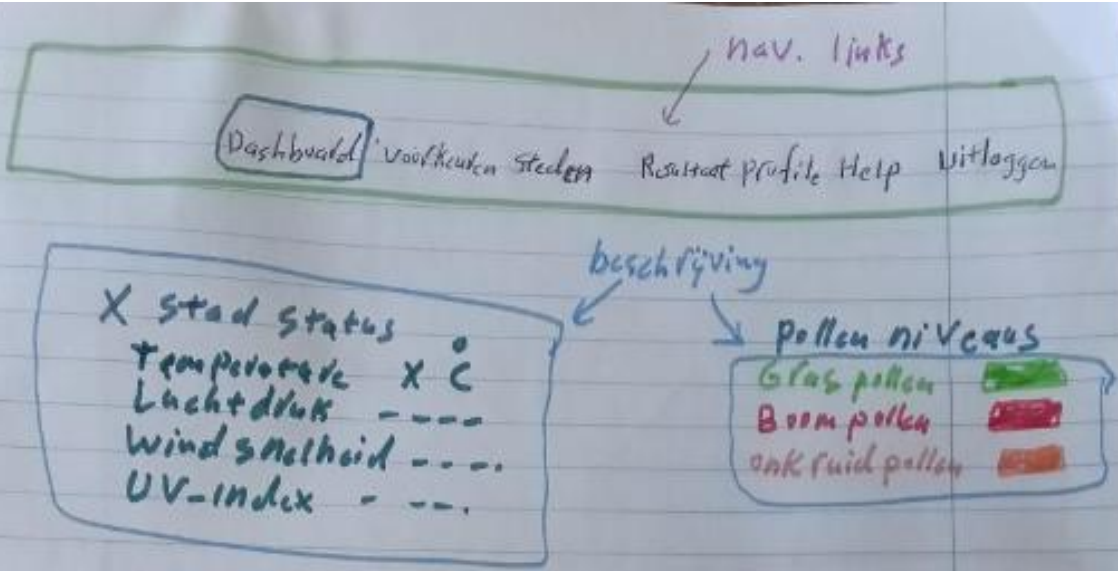 nav. links
Dashboard voorkeuren steden Resultaat profile Help Uitloggen
beschrijving
X stad status
Temperatuure X °C
Luchtdruk ----
Wind snelheid ----.
UV-Index - --.
pollen niveaus
Gras pollen
Boom pollen
onkruid pollen